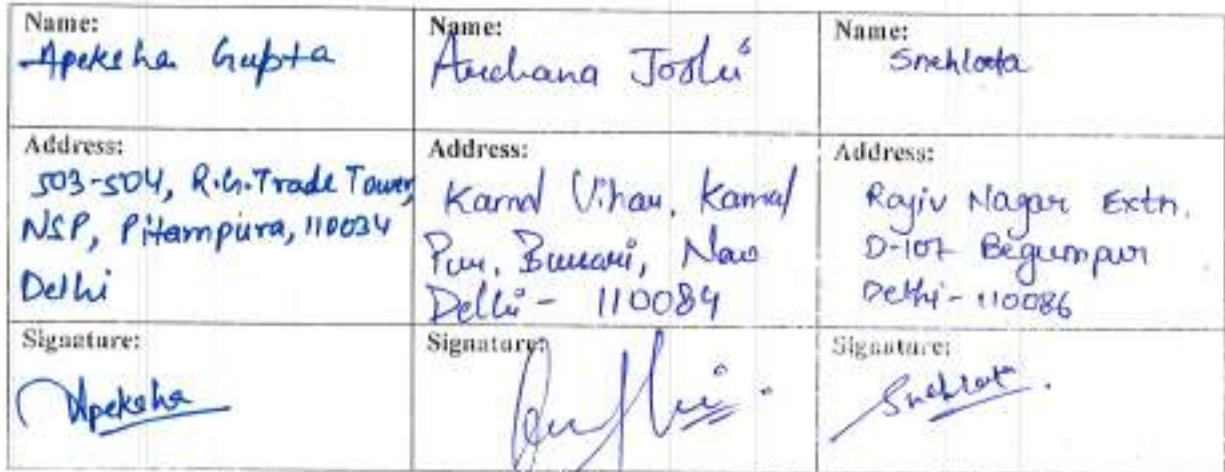 Name:
Apeksha Gupta
Name:
Archana Joshi
Name:
Snehlata
Address:
503-504, R.G. Trade Tower,
NSP, Pitampura, 110034
Delhi
Address:
Kamal Vihar, Kamal
Pur, Burari, New
Delhi - 110084
Address:
Rajiv Nagar Extn.
D-107 Begumpur
Delhi - 110086
Signature:
Apeksha
Signature:
Signature:
Snehlata.